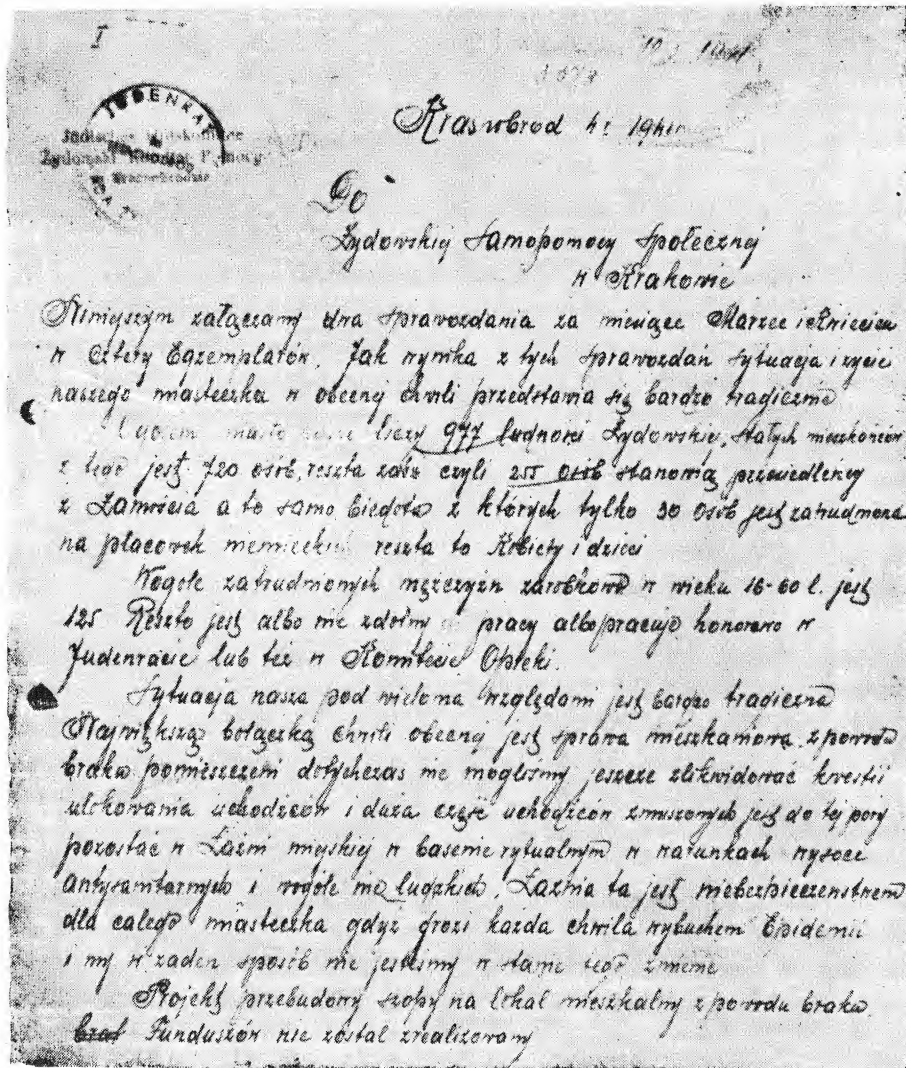 I
1941
JUDENRA
Żydowski Komitet Pomocy
Krasnobrod
Do
Żydowskiej Samopomocy Społecznej
w Krakowie
Niniejszym załączamy dwa sprawozdania za miesiące Marzec i Kwiecień
w cztery Egzemplarów. Jak wynika z tych sprawozdań sytuacja i życie
naszego miasteczka w obecnej chwili przedstawia się bardzo tragicznie
Ogółem miasto liczy 977 ludności Żydowskiej, stałych mieszkańców
z tego jest 720 osób, reszta zaś czyli osób stanowią przesiedleńcy
z Zamościa a to samo biedota z których tylko 30 osób jest zatrudniona
na placowek niemieckich reszta to Kobiety i dzieci
Wogóle zatrudnionych mężczyzn zarobkowo w wieku 16-60 l. jest
125 Reszto jest albo nie zdolny pracy albo pracuje honorowo w
Judenracie lub też w Komitecie Opieki.
Sytuacja nasza pod wieloma względami jest bardzo tragiczna
Największą bolączką chwili obecnej jest sprawa mieszkaniowa, z powodu
braku pomieszczeni dotychczas nie mogliśmy jeszcze zlikwidować kwestii
ulokowania uchodźców i duża część uchodźców zmuszonych jest do tej pory
pozostać w Łaźni miejskiej w basenie rytualnym w warunkach wysoce
antysanitarnych i wogóle nie ludzkich. Łaźnia ta jest niebezpieczeństwem
dla całego miasteczka gdyż grozi każda chwila wybuchem Epidemii
i my w żaden sposób nie jesteśmy w stanie tego zmienić
Projekt przebudowy szopy na lokal mieszkalny z powodu braku
Funduszów nie został zrealizowany